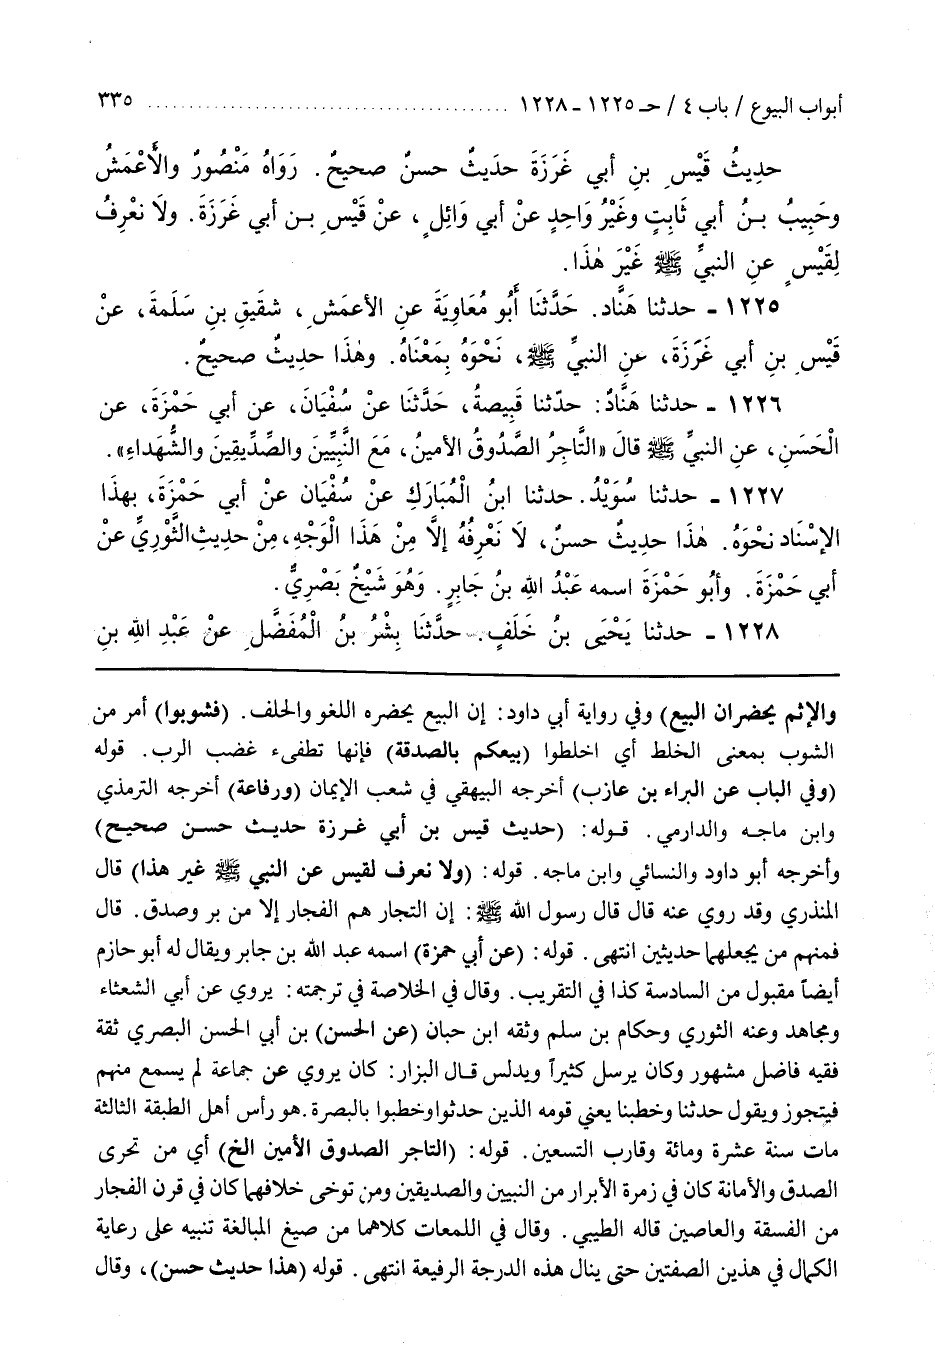 أبواب البيوع / باب ٤ / حـ ١٢٢٥ - ١٢٢٨ ........................................ ٣٣٥
حدِيثُ قَيْسِ بنِ أبي غَرَزَةَ حدَيثٌ حسنٌ صحيحٌ. رَوَاهُ مَنْصُورٌ والأَعْمَشُ
وحَبِيبُ بـنُ أبي ثَابِتٍ وغَيْرُ وَاحِدٍ عنْ أبي وَائِلٍ، عنْ قَيْسِ بـن أبي غَرَزَةَ. ولا نعْرِفُ
لِقَيْسٍ عنِ النبيِّ ﷺ غَيْرَ هٰذَا.
١٢٢٥ - حدثنا هَنَّاد. حَدَّثَنَا أَبُو مُعَاوِيَةَ عنِ الأعمَشِ، شقَيقِ بنِ سَلَمةَ، عنْ
قَيْسِ بنِ أبي غَرَزَةَ، عنِ النبيِّ ﷺ، نَحْوَهُ بِمَعْنَاهُ. وهٰذَا حديثٌ صحيحٌ.
١٢٢٦ - حدثنا هَنَّادٌ: حدّثنا قَبِيصةُ، حَدَّثَنَا عنْ سُفْيَانَ، عن أبي حَمْزَةَ، عن
الْحَسَنِ، عنِ النبيِّ ﷺ قالَ «التَّاجِرُ الصَّدُوقُ الأمينُ، مَعَ النَّبِيِّينَ والصِّدِّيقِينَ والشُّهَداءِ».
١٢٢٧ - حدثنا سُوَيْدٌ. حدثنا ابنُ الْمُبَارَكِ عنْ سُفْيَان عنْ أبي حَمْزَةَ، بهذا
الإسْنَاد نحْوَهُ. هٰذَا حديثٌ حسنٌ، لَا نَعْرِفُهُ إلَّا مِنْ هَذَا الْوَجْهِ، مِنْ حديثِ الثَّوْرِيِّ عنْ
أبي حَمْزَةَ. وأبُو حَمْزَةَ اسمه عَبْدُ اللهِ بنُ جَابِرٍ. وَهُوَ شَيْخٌ بَصْرِيٌّ.
١٢٢٨ - حدثنا يَحْيَى بنُ خَلَفٍ. حدَّثَنَا بِشْرُ بنُ الْمُفَضَّلِ عنْ عَبْدِ اللهِ بنِ
والإثم يحضران البيع) وفي رواية أبي داود: إن البيع يحضره اللغو والحلف. (فشوبوا) أمر من
الشوب بمعنى الخلط أي اخلطوا (بيعكم بالصدقة) فإنها تطفىء غضب الرب. قوله
(وفي الباب عن البراء بن عازب) أخرجه البيهقي في شعب الإيمان (ورفاعة) أخرجه الترمذي
وابن ماجـه والدارمي. قـوله: (حديث قيس بن أبي غـرزة حديـث حسـن صحيـح)
وأخرجه أبو داود والنسائي وابن ماجه. قوله: (ولا نعرف لقيس عن النبي ﷺ غير هذا) قال
المنذري وقد روي عنه قال قال رسول الله ﷺ: إن التجار هم الفجار إلا من بر وصدق. قال
فمنهم من يجعلهما حديثين انتهى. قوله: (عن أبي حمزة) اسمه عبد الله بن جابر ويقال له أبو حازم
أيضاً مقبول من السادسة كذا في التقريب. وقال في الخلاصة في ترجمته: يروي عن أبي الشعثاء
ومجاهد وعنه الثوري وحكام بن سلم وثقه ابن حبان (عن الحسن) بن أبي الحسن البصري ثقة
فقيه فاضل مشهور وكان يرسل كثيراً ويدلس قـال البزار: كان يروي عن جماعة لم يسمع منهم
فيتجوز ويقول حدثنا وخطبنا يعني قومه الذين حدثوا وخطبوا بالبصرة. هو رأس أهل الطبقة الثالثة
مات سنة عشرة ومائة وقارب التسعين. قوله: (التاجر الصدوق الأمين الخ) أي من تحرى
الصدق والأمانة كان في زمرة الأبرار من النبيين والصديقين ومن توخى خلافهما كان في قرن الفجار
من الفسقة والعاصين قاله الطيبي. وقال في اللمعات كلاهما من صيغ المبالغة تنبيه على رعاية
الكمال في هذين الصفتين حتى ينال هذه الدرجة الرفيعة انتهى. قوله (هذا حديث حسن)، وقال